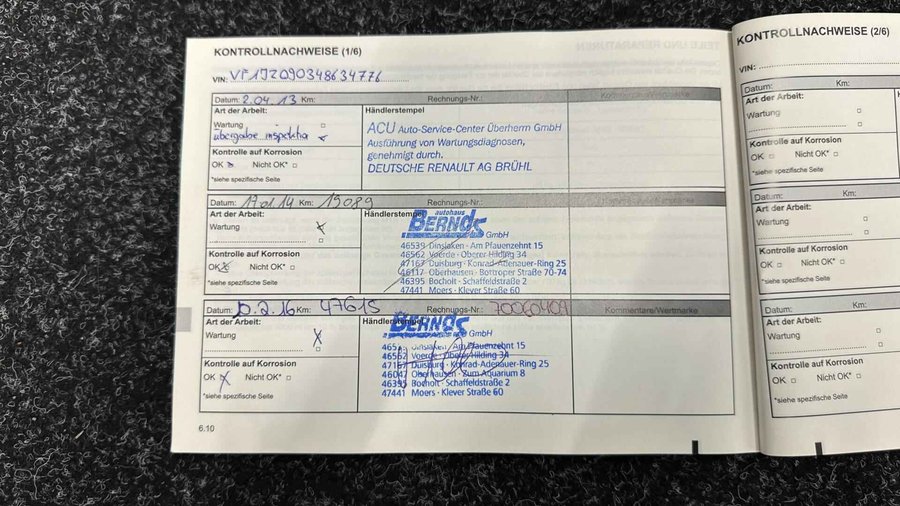 KONTROLLNACHWEISE (1/6)
VIN: VF1JZ090348634776
Datum: 2.04.13 Km: Rechnungs-Nr.:
Art der Arbeit: Händlerstempel
Wartung
Übergabe inspektion
ACU Auto-Service-Center Überherrn GmbH
Ausführung von Wartungsdiagnosen,
genehmigt durch.
DEUTSCHE RENAULT AG BRÜHL
Kontrolle auf Korrosion
OK Nicht OK*
*siehe spezifische Seite
Datum: 17.01.14 Km: 15089 Rechnungs-Nr.:
Art der Arbeit: Händlerstempel
Wartung
autohaus
BERNDS GmbH
46539 Dinslaken · Am Pfauenzehnt 15
46562 Voerde · Oberer Hilding 34
47167 Duisburg · Konrad-Adenauer-Ring 25
46117 Oberhausen · Bottroper Straße 70-74
46395 Bocholt · Schaffeldstraße 2
47441 Moers · Klever Straße 60
Kontrolle auf Korrosion
OK Nicht OK*
*siehe spezifische Seite
Datum: 10.2.16 Km: 47615 Rechnungs-Nr.: 70060409 Kommentare/Wertmarke
Art der Arbeit: Händlerstempel
Wartung
BERNDS GmbH
Dinslaken · Am Pfauenzehnt 15
46562 Voerde · Oberer Hilding 34
47167 Duisburg · Konrad-Adenauer-Ring 25
46047 Oberhausen · Zum Aquarium 8
46395 Bocholt · Schaffeldstraße 2
47441 Moers · Klever Straße 60
Kontrolle auf Korrosion
OK Nicht OK*
*siehe spezifische Seite
6.10
KONTROLLNACHWEISE (2/6)
VIN:
Datum: Km:
Art der Arbeit:
Wartung
Kontrolle auf Korrosion
OK Nicht OK*
*siehe spezifische Seite
Datum: Km:
Art der Arbeit:
Wartung
Kontrolle auf Korrosion
OK Nicht OK*
*siehe spezifische Seite
Datum: Km:
Art der Arbeit:
Wartung
Kontrolle auf Korrosion
OK Nicht OK*
*siehe spezifische Seite